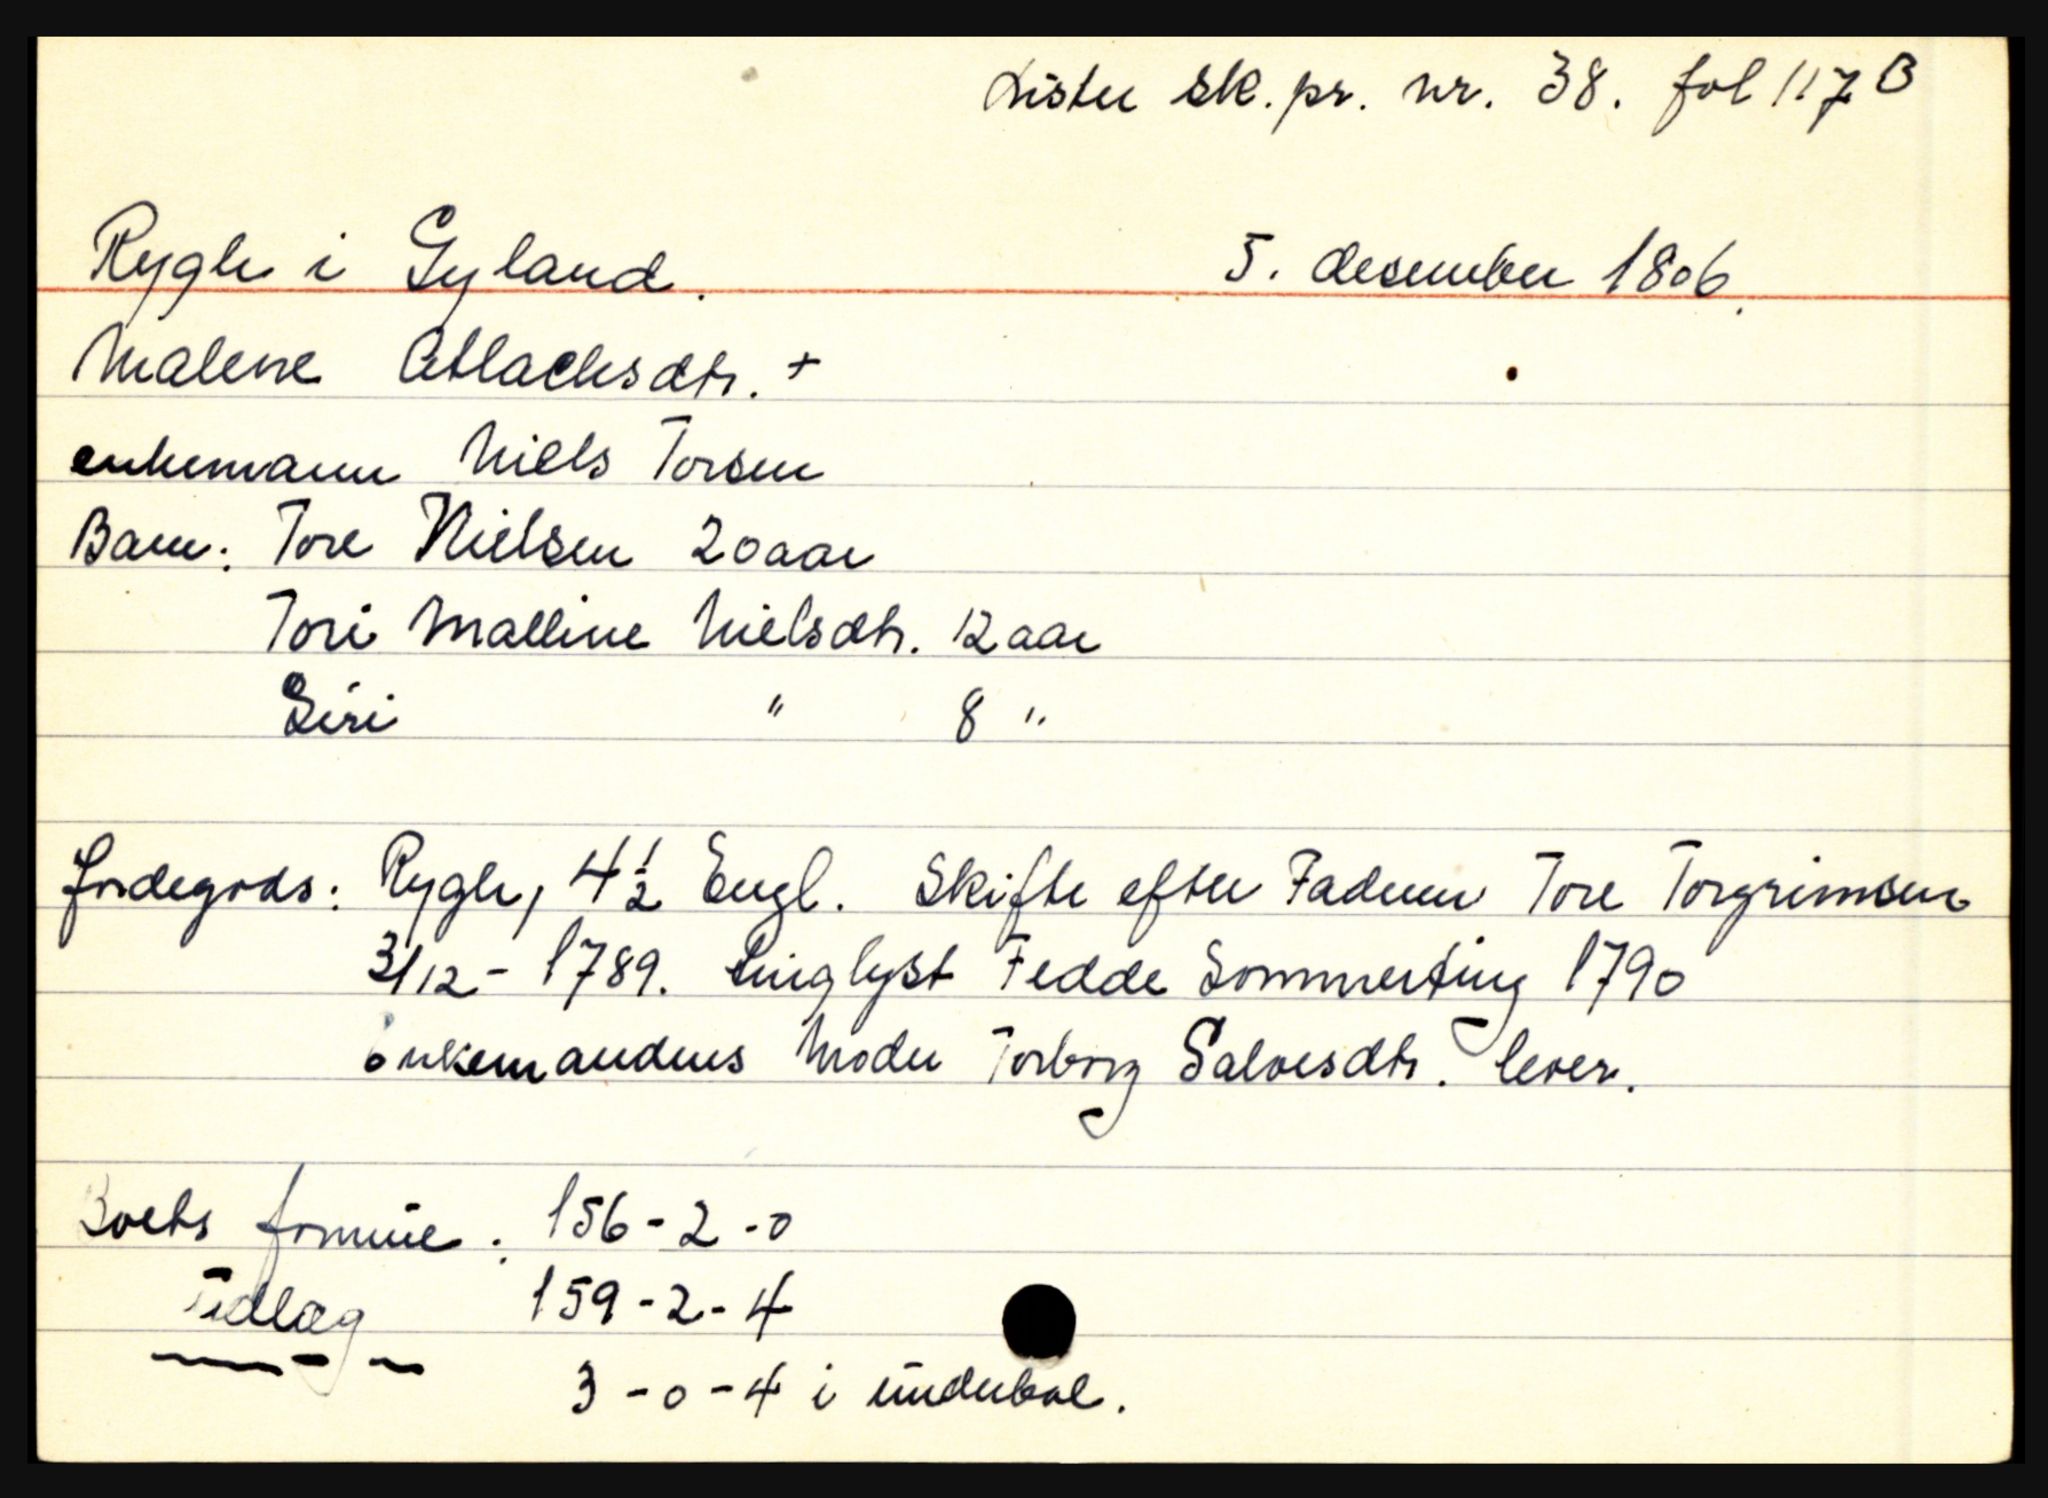 Lister sk.pr. nr. 38. fol 117 B
Rygle i Gyland. 5. desember 1806.
Malene Atlachsdtr. +
enkemann Niels Torsen
Barn: Tore Nielsen 20 aar
Tori Malline Nielsdtr. 12 aar
Siri " 8 "
Jordegods: Rygle, 4 1/2 Engl. Skifte efter Faderen Tore Torgrimsen
3/12 - 1789. tinglyst Fedde Sommerting 1790
enkemandens Moder Torborg Salvesdtr. lever.
Boets formue: 156 - 2 - 0
Udlæg 159 - 2 - 4
3 - 0 - 4 i underbal.